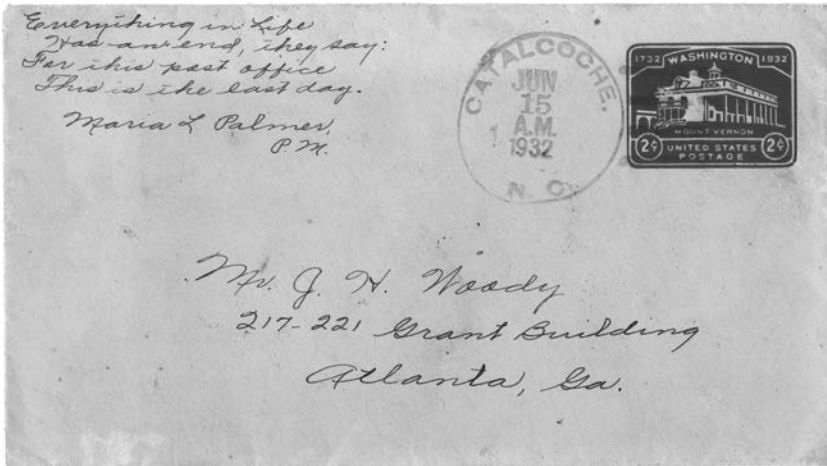 Everything in Life
Has an end, they say:
For this post office
This is the last day.
Maria L Palmer,
P.M.
CATALOOCHE.
JUN
15
A.M.
1932
N. C.
1732 WASHINGTON 1932
MOUNT VERNON
2¢ UNITED STATES 2¢
POSTAGE
Mr. J. H. Woody
217-221 Grant Building
Atlanta, Ga.